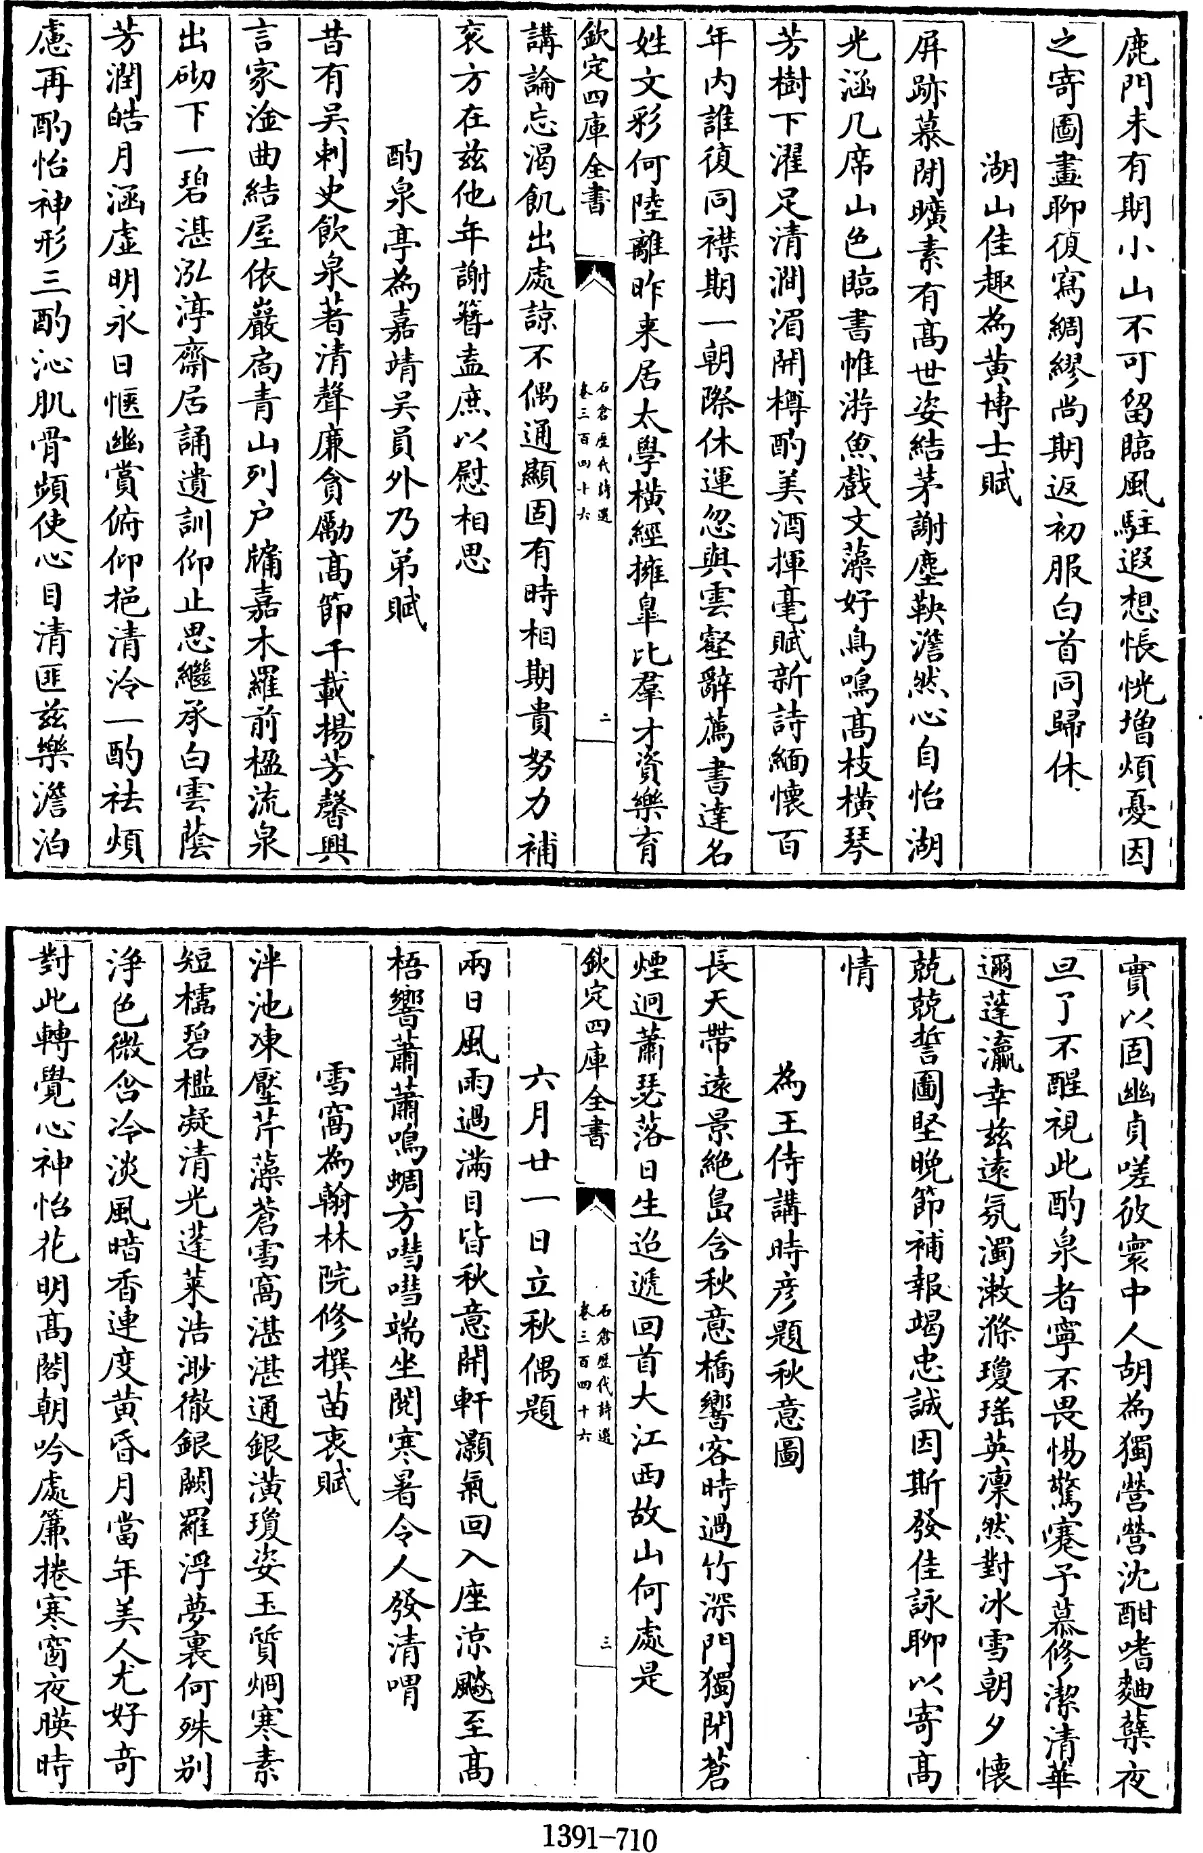 鹿門未有期小山不可留臨風駐遐想悵恍增煩憂因
之寄圖畫聊復寫綢繆尚期返初服白首同歸休
湖山佳趣為黃博士賦
屏跡慕閒曠素有高世姿結茅謝塵鞅澹然心自怡湖
光涵几席山色臨書帷游魚戲文藻好鳥鳴高枝橫琴
芳樹下濯足清澗湄開樽酌美酒揮毫賦新詩緬懷百
年內誰復同襟期一朝際休運忽與雲壑辭薦書達名
姓文彩何陸離昨來居太學橫經擁臯比羣才資樂育
欽定四庫全書
石倉歷代詩選
卷三百四十六
二
講論忘渴飢出處諒不偶通顯固有時相期貴努力補
衮方在茲他年謝簪盍庶以慰相思
酌泉亭為嘉靖吴員外乃弟賦
昔有吴刺史飲泉著清聲廉貪勵高節千載揚芳馨興
言家淦曲結屋依巖扃青山列户牖嘉木羅前楹流泉
出砌下一碧湛泓渟齋居誦遺訓仰止思繼承白雲蔭
芳潤皓月涵虚明永日愜幽賞俯仰挹清泠一酌袪煩
慮再酌怡神形三酌沁肌骨頻使心目清匪茲樂澹泊
實以固幽貞嗟彼寰中人胡為獨營營沈酣嗜麯糵夜
旦了不醒視此酌泉者寧不畏惕驚蹇予慕修潔清華
邇蓬瀛幸茲遠氛濁漱滌瓊瑤英凜然對冰雪朝夕懷
兢兢誓圖堅晚節補報竭忠誠因斯發佳詠聊以寄高
情
為王侍講時彦題秋意圖
長天帶遠景絶島含秋意橋響客時過竹深門獨閉蒼
煙迥蕭瑟落日生迢遞回首大江西故山何處是
欽定四庫全書
石倉歷代詩選
卷三百四十六
三
六月廿一日立秋偶題
兩日風雨過滿目皆秋意開軒灝氣回入座涼飈至高
梧響蕭蕭鳴蜩方嘒嘒端坐閲寒暑令人發清喟
雪窩為翰林院修撰苗衷賦
泮池凍壓芹藻蒼雪窩湛湛通銀潢瓊姿玉質炯寒素
短檽碧檻凝清光蓬萊浩渺徹銀闕羅浮夢裏何殊别
淨色微含冷淡風暗香連度黄昏月當年美人尤好奇
對此轉覺心神怡花明高閣朝吟處簾捲寒窗夜暎時
1391-710